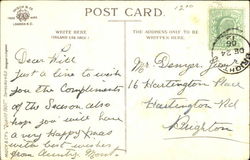 POST CARD.
12.50
WRITE HERE
THE ADDRESS ONLY TO BE
WRITTEN HERE.
Dear Will
Just a line to wish
you the Compliments
of the Season, also
hope you will have
a very Happy Xmas
with best wishes
from Aunty
Mr Denyer
16 Hartington Place
Hartington Rd
Brighton